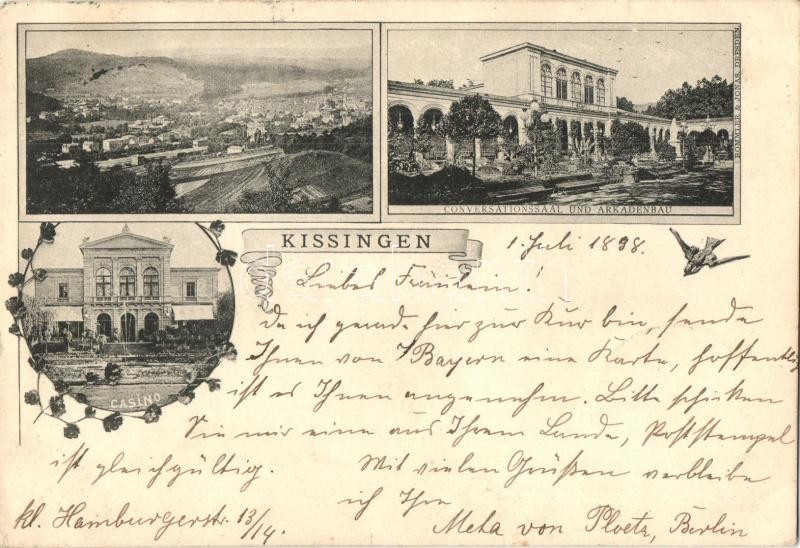 CONVERSATIONSSAAL UND ARKADENBAU
ROMMLER & JONAS DRESDEN
KISSINGEN
CASINO
1. Juli 1898.
Liebes Fräulein!
Da ich gerade hier zur Kur bin, sende
Ihnen von Bayern eine Karte, hoffentlich
ist es Ihnen angenehm. Bitte schicken
Sie mir eine aus Ihrem Lande, Poststempel
ist gleichgültig. Mit vielen Grüßen verbleibe
ich Ihre
kl. Hamburgerstr. 13/14. Meta von Ploetz, Berlin